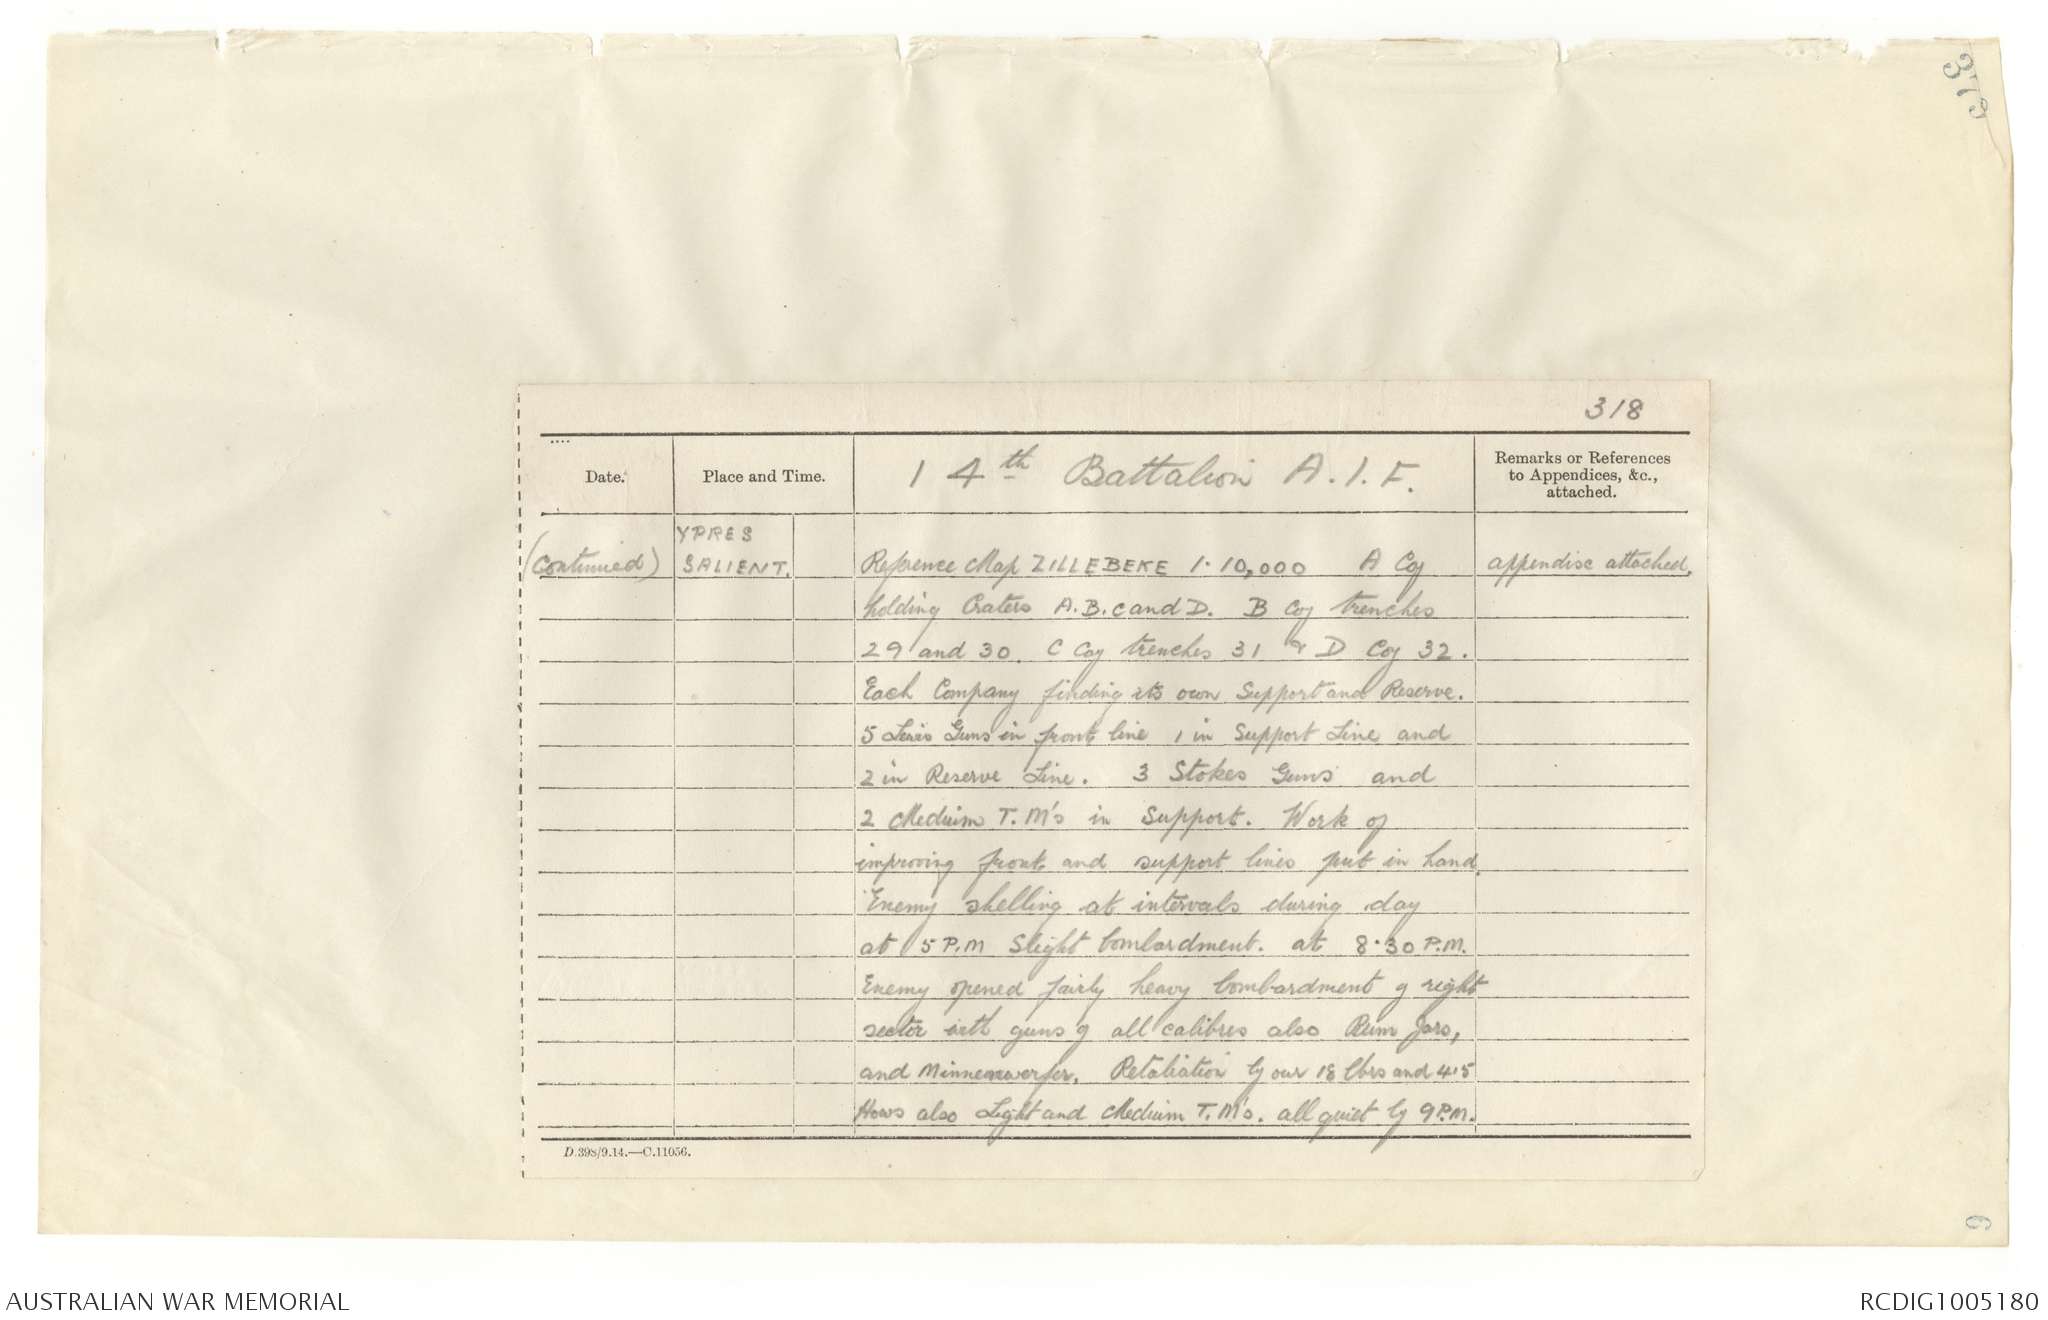 373
318
Date.
Place and Time.
14th Battalion A.I.F.
Remarks or References
to Appendices, &c.,
attached.
(Continued)
YPRES
SALIENT.
Reference Map ZILLEBEKE 1.10,000 A Coy
appendix attached.
holding Craters A.B.C and D. B Coy trenches
29 and 30. C Coy trenches 31 & D Coy 32.
Each Company finding its own Support and Reserve.
5 Lewis Guns in front line 1 in Support Line and
2 in Reserve Line. 3 Stokes Guns and
2 Medium T.M's in Support. Work of
improving front and support lines put in hand.
Enemy shelling at intervals during day
at 5 P.M Slight bombardment. at 8.30 P.M.
Enemy opened fairly heavy bombardment of right
sector with guns of all calibres also Rum Jars,
and Minnenwerfer. Retaliation by our 18 lbrs and 4.5
Hows also Light and Medium T.M's. all quiet by 9 P.M.
D.398/9.14.—C.11056.
9
AUSTRALIAN WAR MEMORIAL
RCDIG1005180